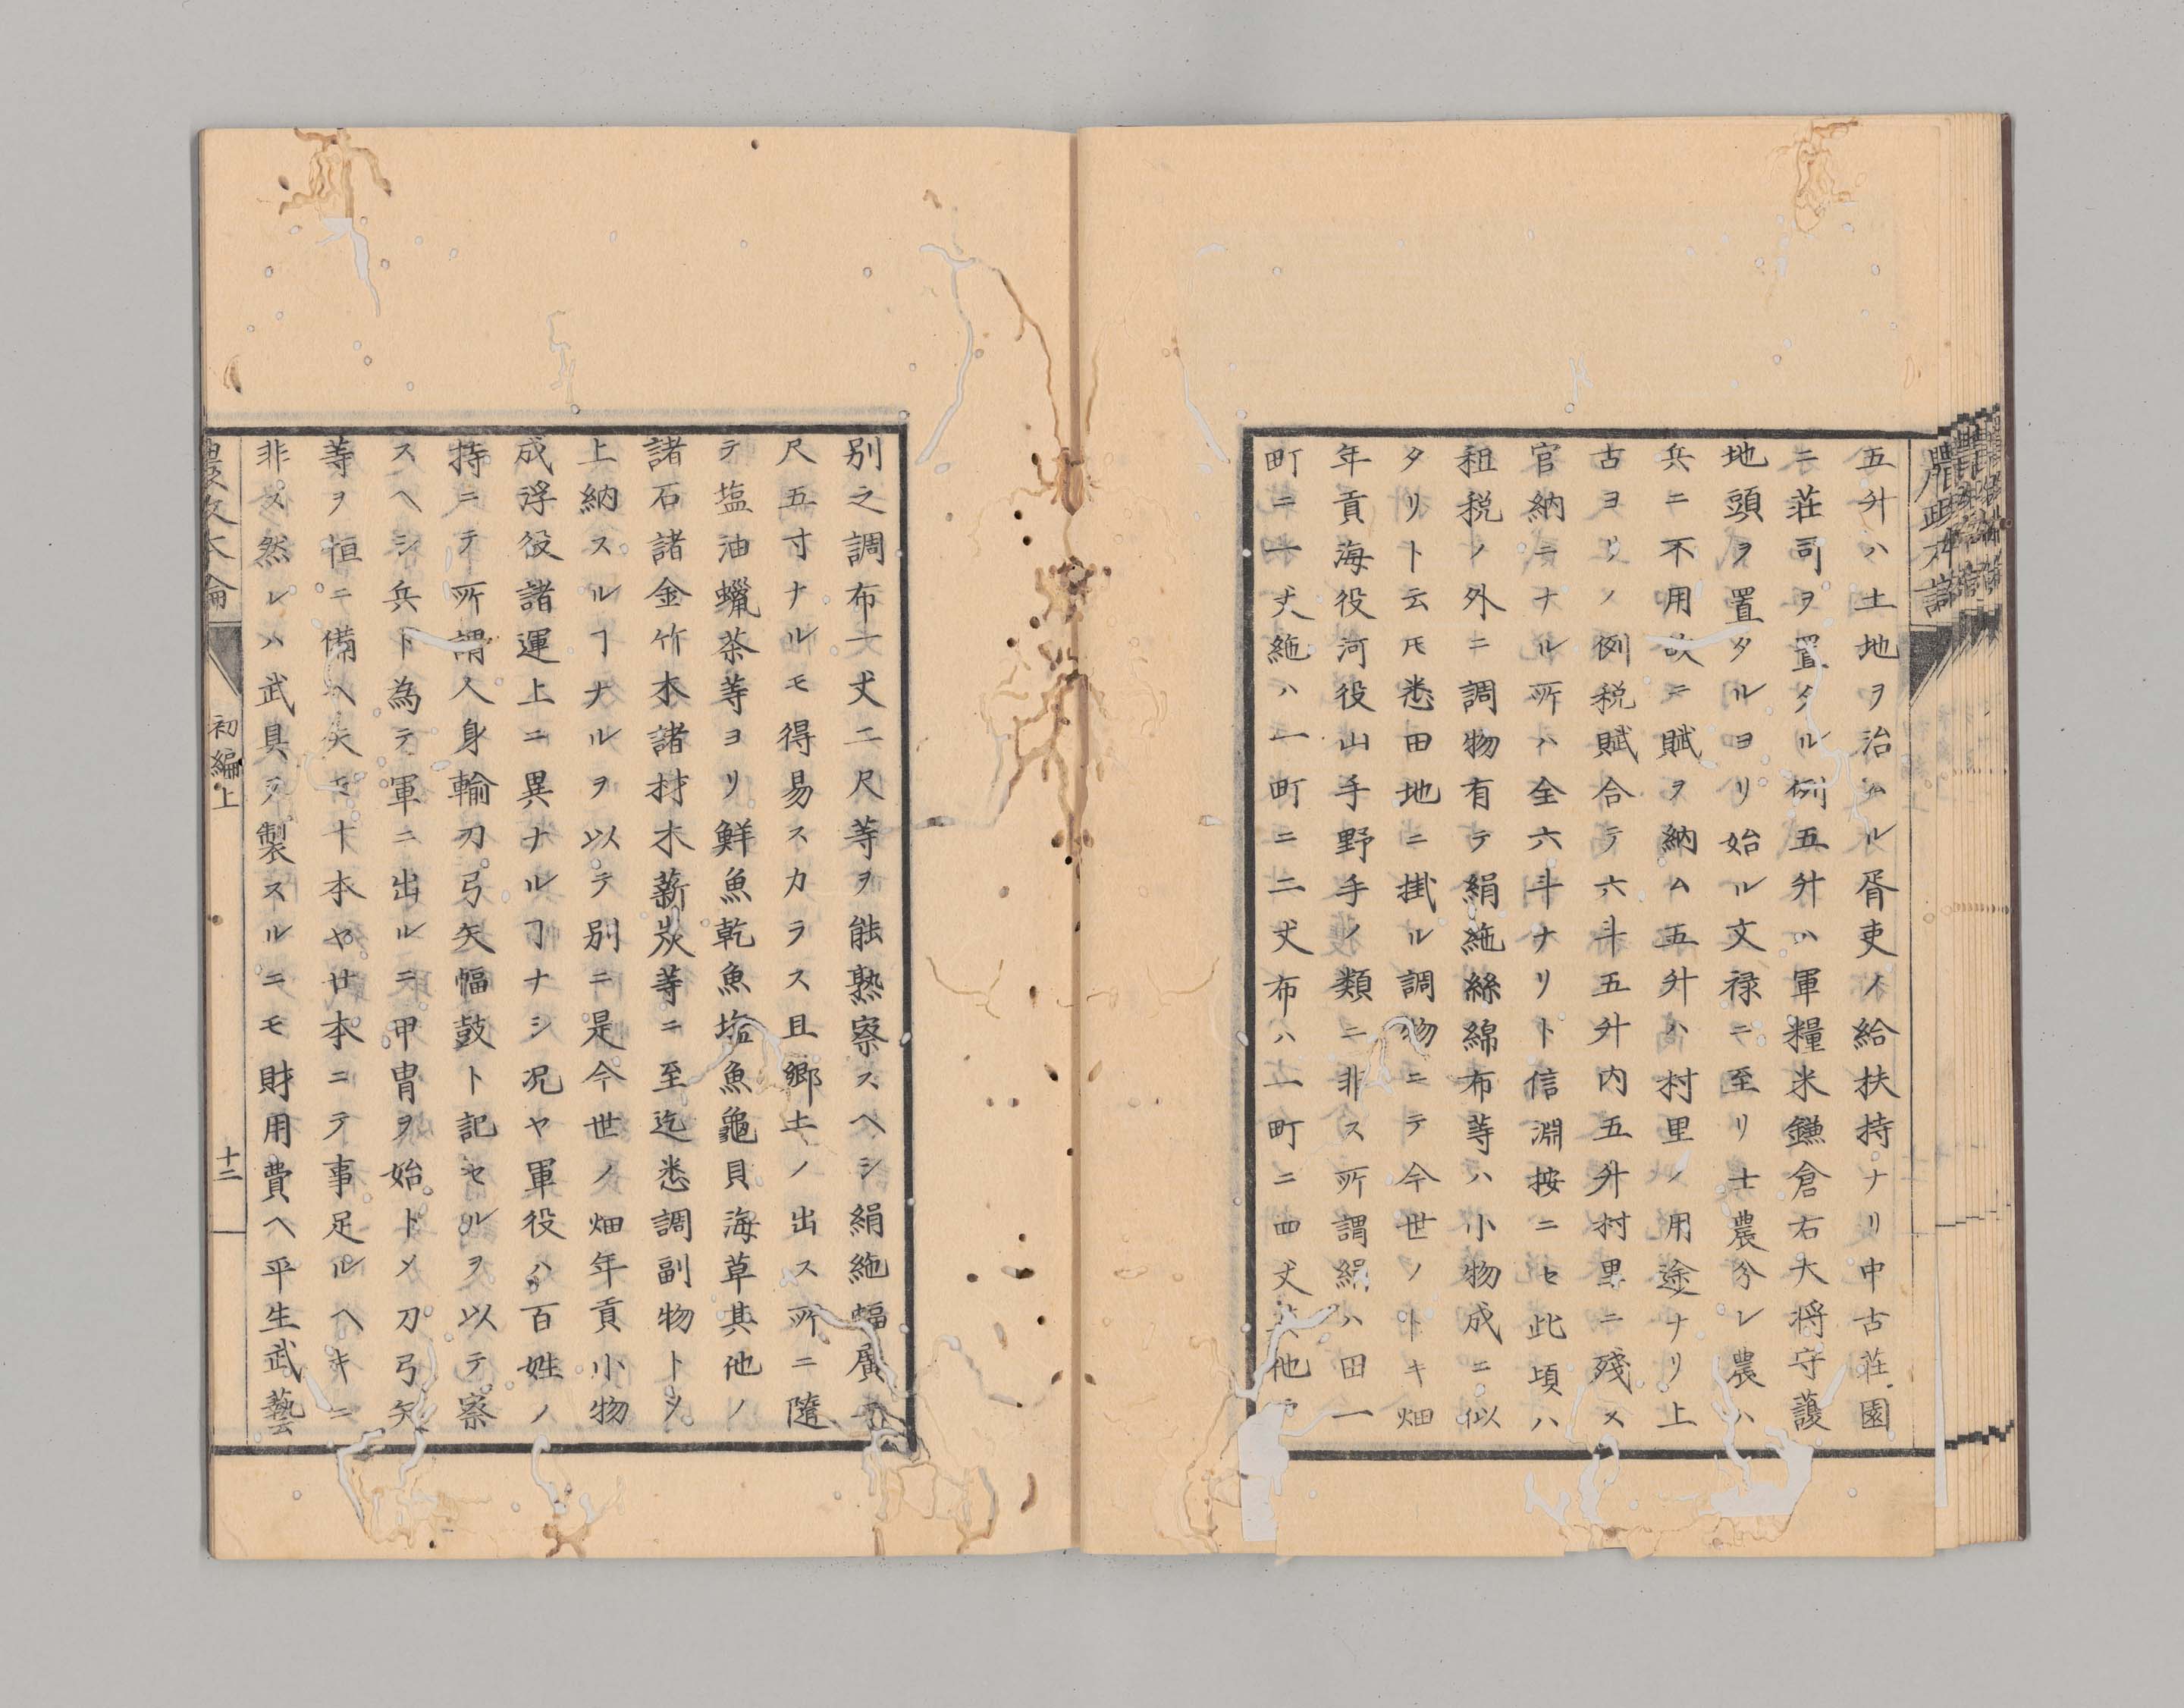 五升ハ土地ヲ治ムル胥吏ノ給扶持ナリ中古荘園
ニ荘司ヲ置タル例五升ハ軍糧米鎌倉右大将守護
地頭ヲ置タルヨリ始ル文禄ニ至リ士農分レ農ハ
兵ニ不用故ニ賦ヲ納ム五升ハ村里ノ用途ナリ上
古ヨリノ例税賦合テ六斗五升内五升村里ニ残ス
官納ニナル所ハ全六斗ナリト信淵按ニセ此頃ハ
租税ノ外ニ調物有テ絹絁絲綿布等ハ小物成ニ似
タリト云𪜈悉田地ニ掛ル調物ニテ今世ノトキ畑
年貢海役河役山手野手ノ類ニ非ス所謂絹ハ田一
町ニ一丈絁ハ一町ニ二丈布ハ一町ニ四丈其他戸
別之調布一丈二尺等ヲ能熟察スヘシ絹絁幅廣二
尺五寸ナルモ得易スカラス且郷土ノ出ス所ニ隨
テ塩油蠟茶等ヨリ鮮魚乾魚塩魚龜貝海草其他ノ
諸石諸金竹木諸材木薪炭等ニ至迄悉調副物トシ
上納スルヿナルヲ以テ別ニ是今世ノ畑年貢小物
成浮役諸運上ニ異ナルヿナシ况ヤ軍役ハ百姓ノ
持ニテ所謂人身輸刀弓矢幡鼓ト記セルヲ以テ察
スヘシ兵ト為テ軍ニ出ルニ甲冑ヲ始トメ刀弓矢
等ヲ恒ニ備ヘ矢モ十本ヤ廿本ニテ事足ルヘキニ
非ス然レハ武具ヲ製スルニモ財用費ヘ平生武藝
農政本論
初編上
十二